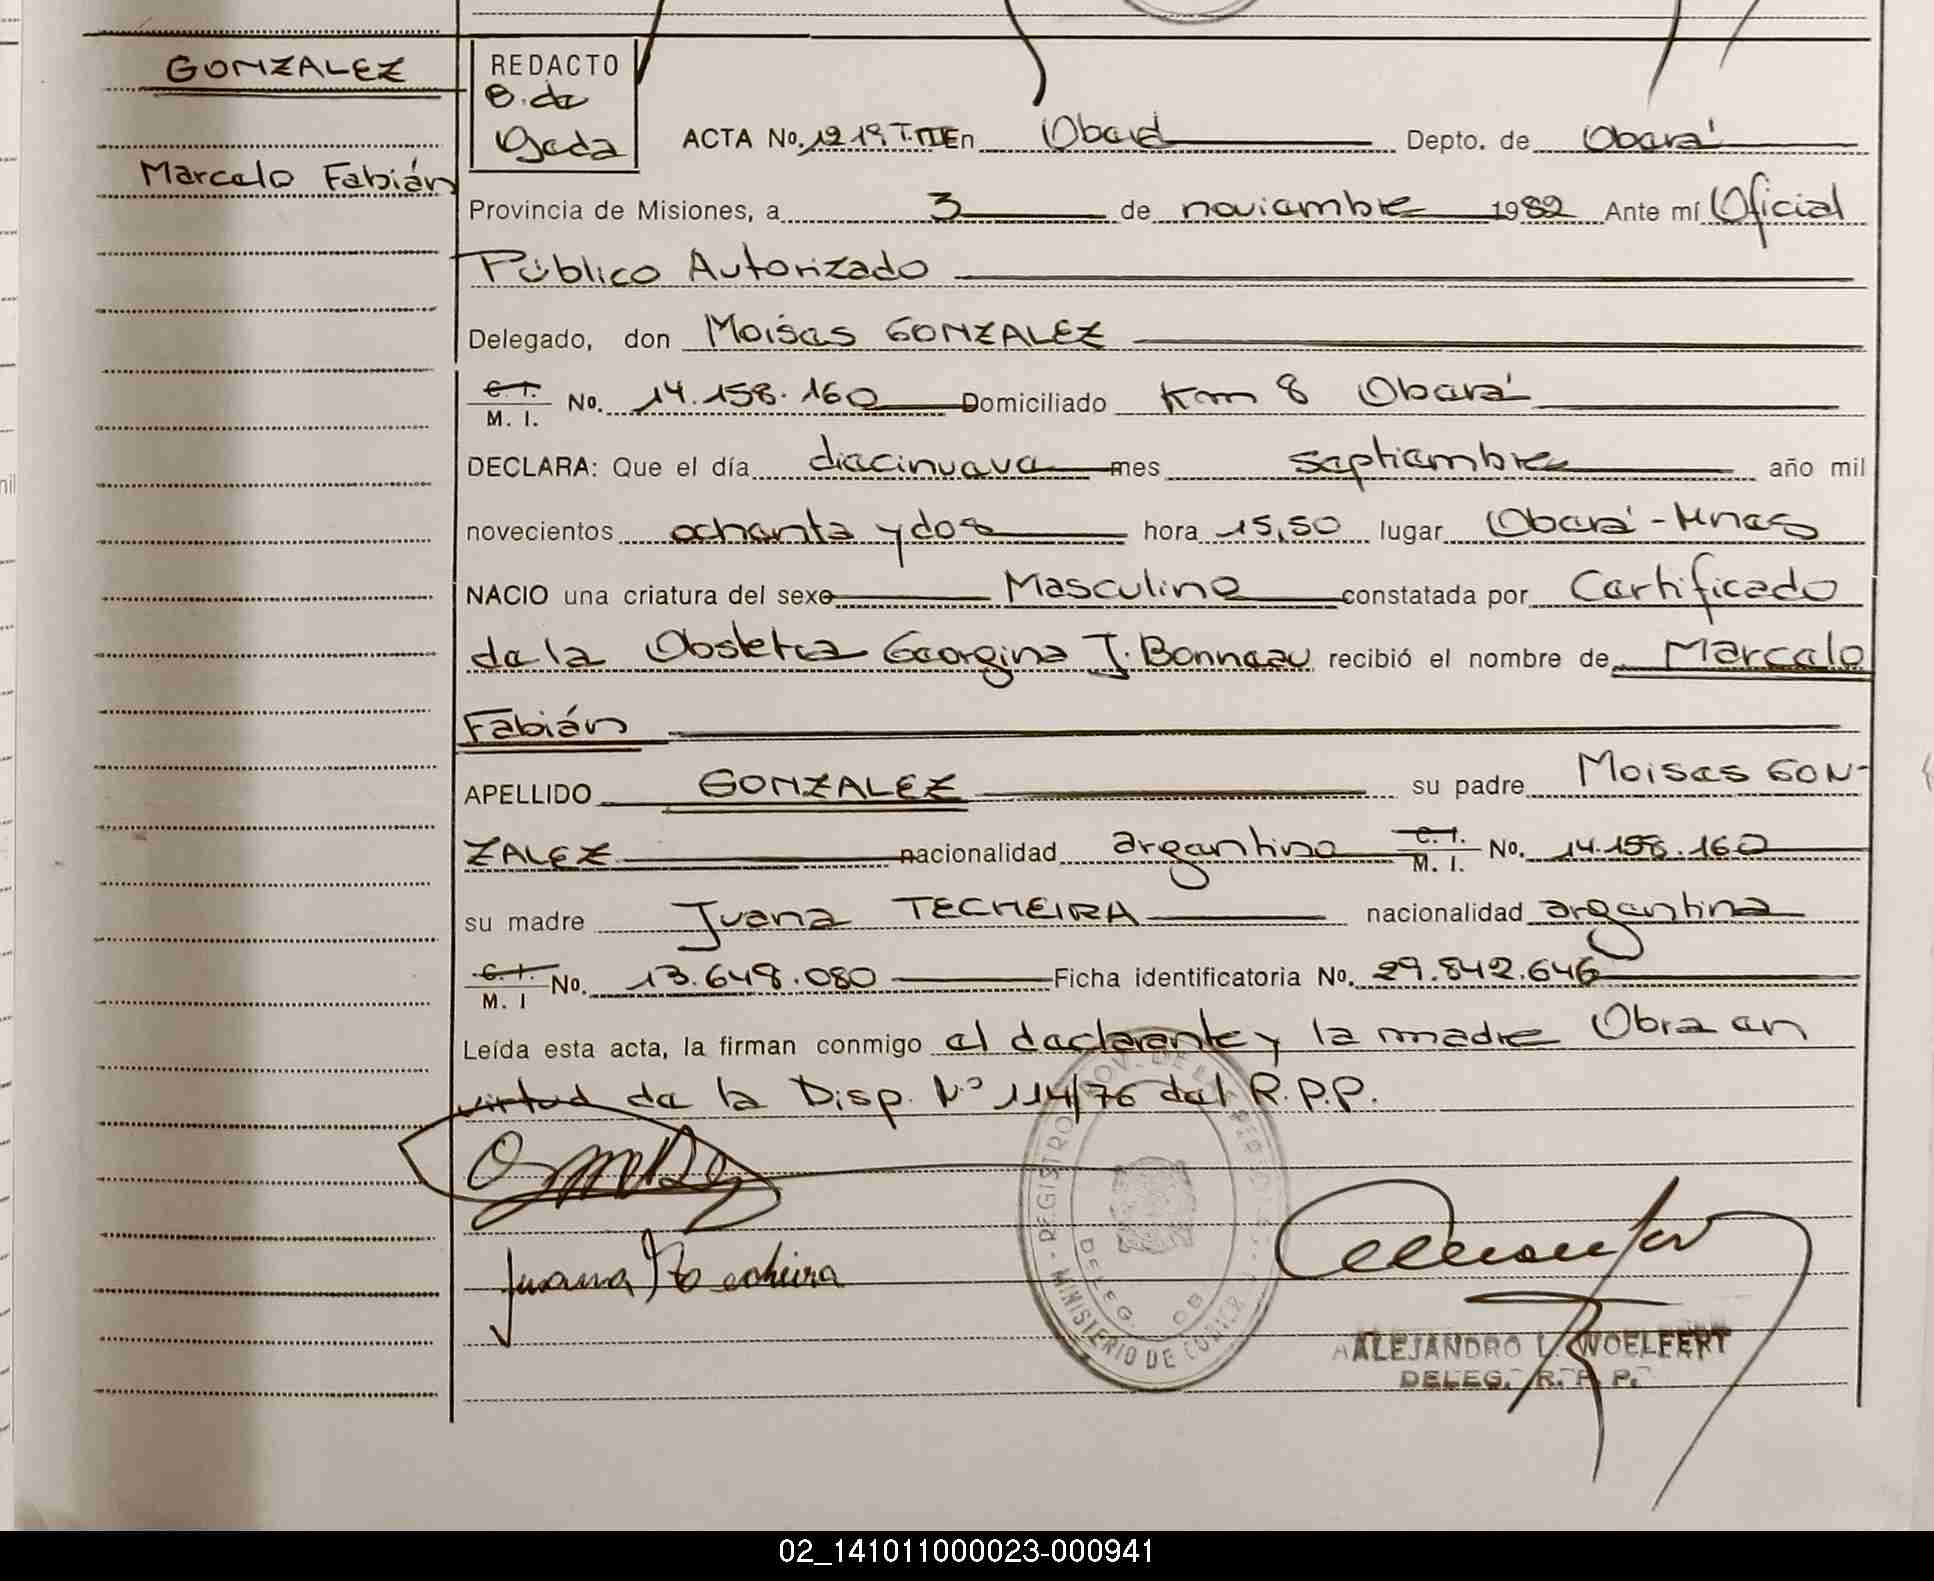 GONZALEZ
Marcelo Fabián
REDACTO
B. de
Ojeda
ACTA No. 1219 T. III En Oberá Depto. de Oberá
Provincia de Misiones, a 3 de noviembre 1982 Ante mí Oficial
Público Autorizado
Delegado, don Moisés GONZALEZ
C. I.
M. I. No. 14.158.160 Domiciliado Km 8 Oberá
DECLARA: Que el día diecinueve mes septiembre año mil
novecientos ochenta y dos hora 15,50 lugar Oberá - Mnes
NACIO una criatura del sexo Masculino constatada por Certificado
de la Obstetra Georgina J. Bonneau recibió el nombre de Marcelo
Fabián
APELLIDO GONZALEZ su padre Moises GON-
ZALEZ nacionalidad argentina C. I. M. I. No. 14.158.160
su madre Juana TECHEIRA nacionalidad argentina
C. I. M. I No. 13.648.080 Ficha identificatoria No. 29.842.646
Leída esta acta, la firman conmigo el declarante y la madre Obra en
virtud de la Disp. Nº 114/76 del R.P.P.
Juana Techeira
REGISTRO PROV. DE LAS PERSONAS
MINISTERIO DE GOBIER
DELEG. OB
ALEJANDRO L. WOELFERT
DELEG. R. P. P.
02_141011000023-000941